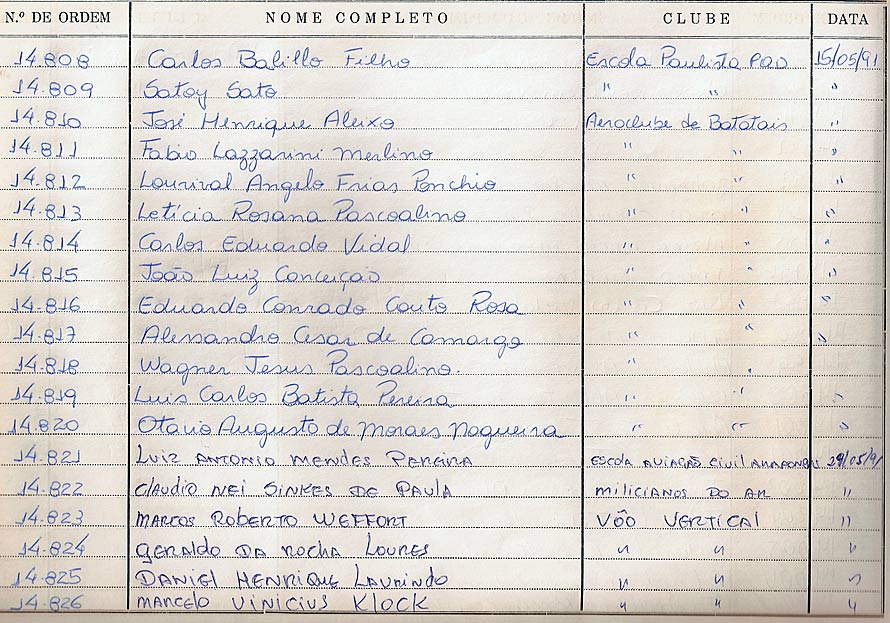 N.º DE ORDEM NOME COMPLETO CLUBE DATA
14.808 Carlos Balillo Filho Escola Paulista PQD 15/05/91
14.809 Satoy Sato " " "
14.810 José Henrique Aleixo Aeroclube de Batatais "
14.811 Fabio Lazzarini Merlino " " "
14.812 Lourival Angelo Frias Ponchio " " "
14.813 Letícia Rosana Pascoalino " " "
14.814 Carlos Eduardo Vidal " " "
14.815 João Luiz Conceição " " "
14.816 Eduardo Conrado Couto Rosa " " "
14.817 Alessandro Cesar de Camargo " " "
14.818 Wagner Jesus Pascoalino. " "
14.819 Luis Carlos Batista Pereira " " "
14.820 Otavio Augusto de Moraes Nogueira " " "
14.821 LUIZ ANTONIO MENDES PEREIRA ESCOLA AVIAÇÃO CIVIL /05/91
14.822 CLAUDIO NEI DE PAULA MILICIANOS DO AR "
14.823 MARCOS ROBERTO WEFFORT VÔO VERTICAL "
14.824 GERALDO DA ROCHA LOURES " " "
14.825 DANIEL HENRIQUE LAURINDO " " "
14.826 MARCELO VINICIUS KLOCK " " "